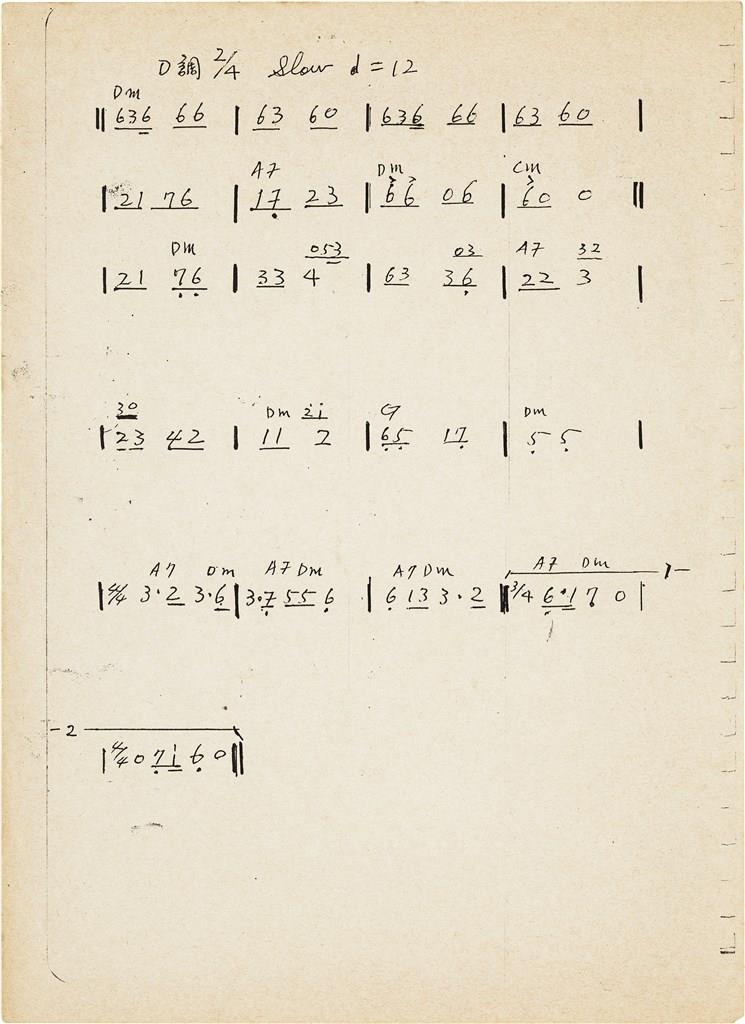 D調 2/4 Slow d = 12
Dm
‖ 636 66 | 63 60 | 636 66 | 63 60 |
A7 Dm Cm
| 21 76 | 17 23 | 66 06 | 60 0 ‖
Dm 053 03 A7 32
| 21 76 | 33 4 | 63 36 | 22 3 |
30 Dm 21 G Dm
| 23 42 | 11 2 | 65 17 | 5 5 |
A7 Dm A7 Dm A7 Dm A7 Dm 1
| 4/4 3·2 3·6 | 3·7 55 6 | 6 13 3·2 ‖ 3/4 6·1 7 0 |
2
| 4/4 0 71 6 0 ‖